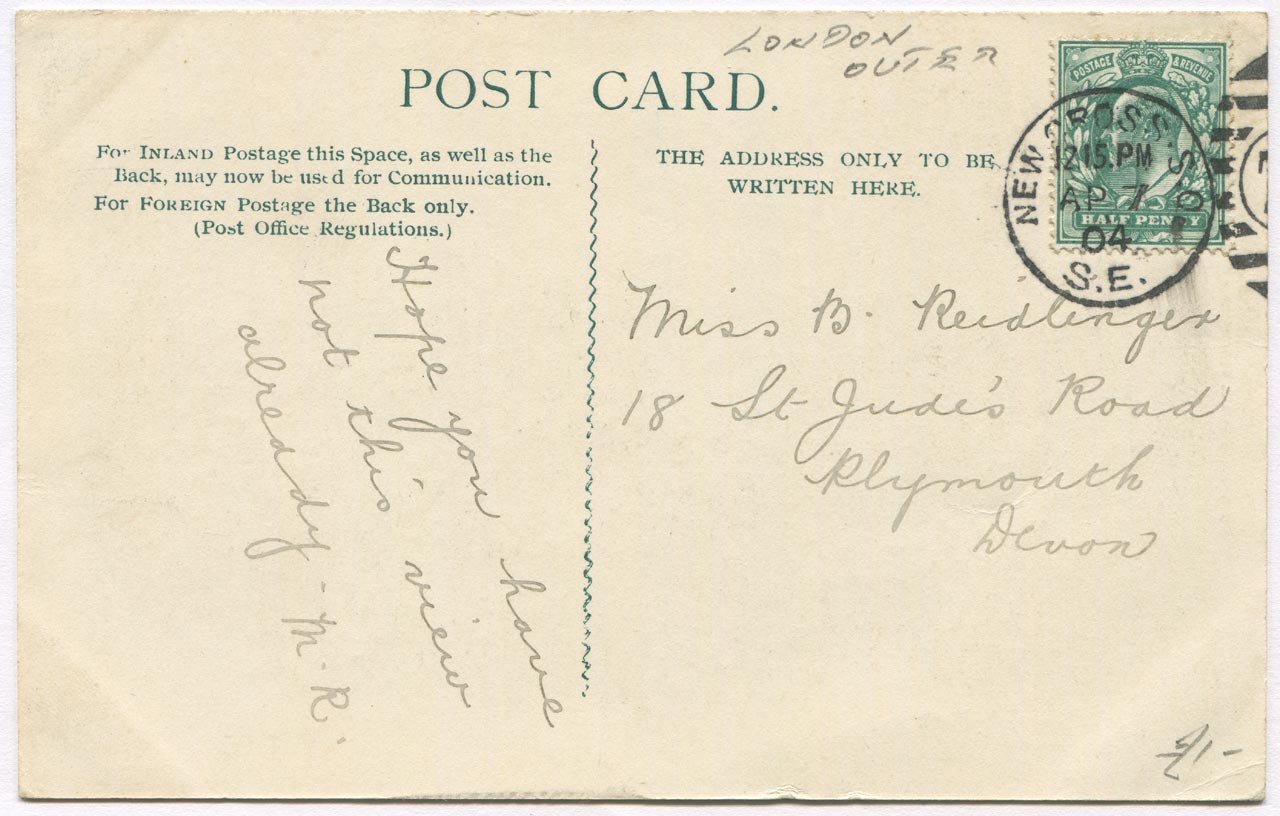 LONDON
OUTER
POST CARD.
For INLAND Postage this Space, as well as the
Back, may now be used for Communication.
For FOREIGN Postage the Back only.
(Post Office Regulations.)
THE ADDRESS ONLY TO BE
WRITTEN HERE.
POSTAGE & REVENUE
HALF PENNY
NEW CROSS S.O.
12 15.PM
AP 7
04
S.E.
Hope you have
not this view
already - M. R.
Miss B. Reidlinger
18 St Jude's Road
Plymouth
Devon